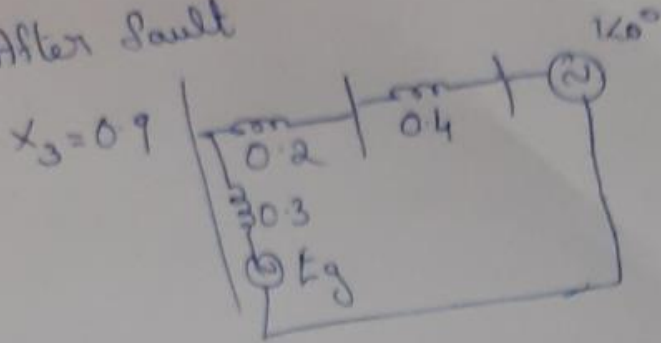 After fault
1∠0°
X3 = 0.9
0.2
0.4
0.3
Eg